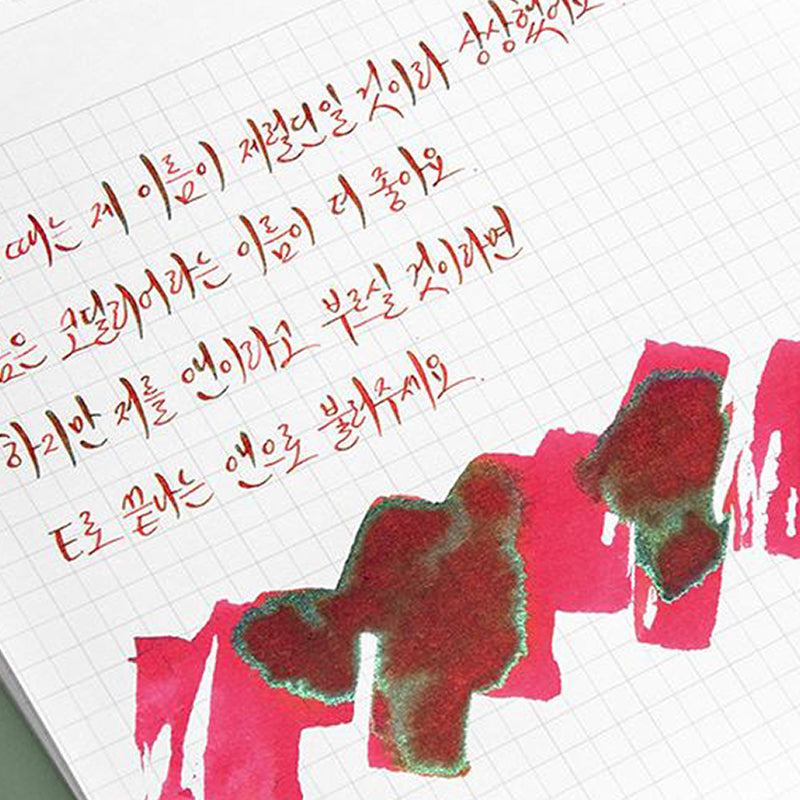 때는 제 이름이 제럴딘일 것이라 상상했어요
은 코델리어라는 이름이 더 좋아요.
하지만 저를 앤이라고 부르실 것이라면
E로 끝나는 앤으로 불러주세요.